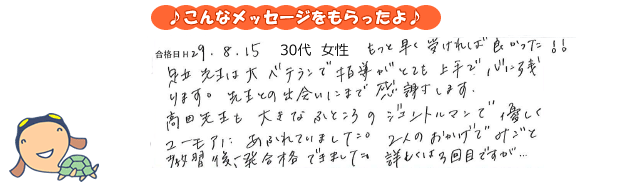 ♪こんなメッセージをもらったよ♪
合格日H29.8.15 30代 女性 もっと早く受ければ良かった!!
先生は大ベテランで指導がとても上手で心に残
ります。先生との出会いにまで感謝します。
高田先生も大きなふところのジェントルマンで優しく
ユーモアにあふれていました。2人のおかげでみごと
教習後一発合格できました。詳しくは3回目ですが…